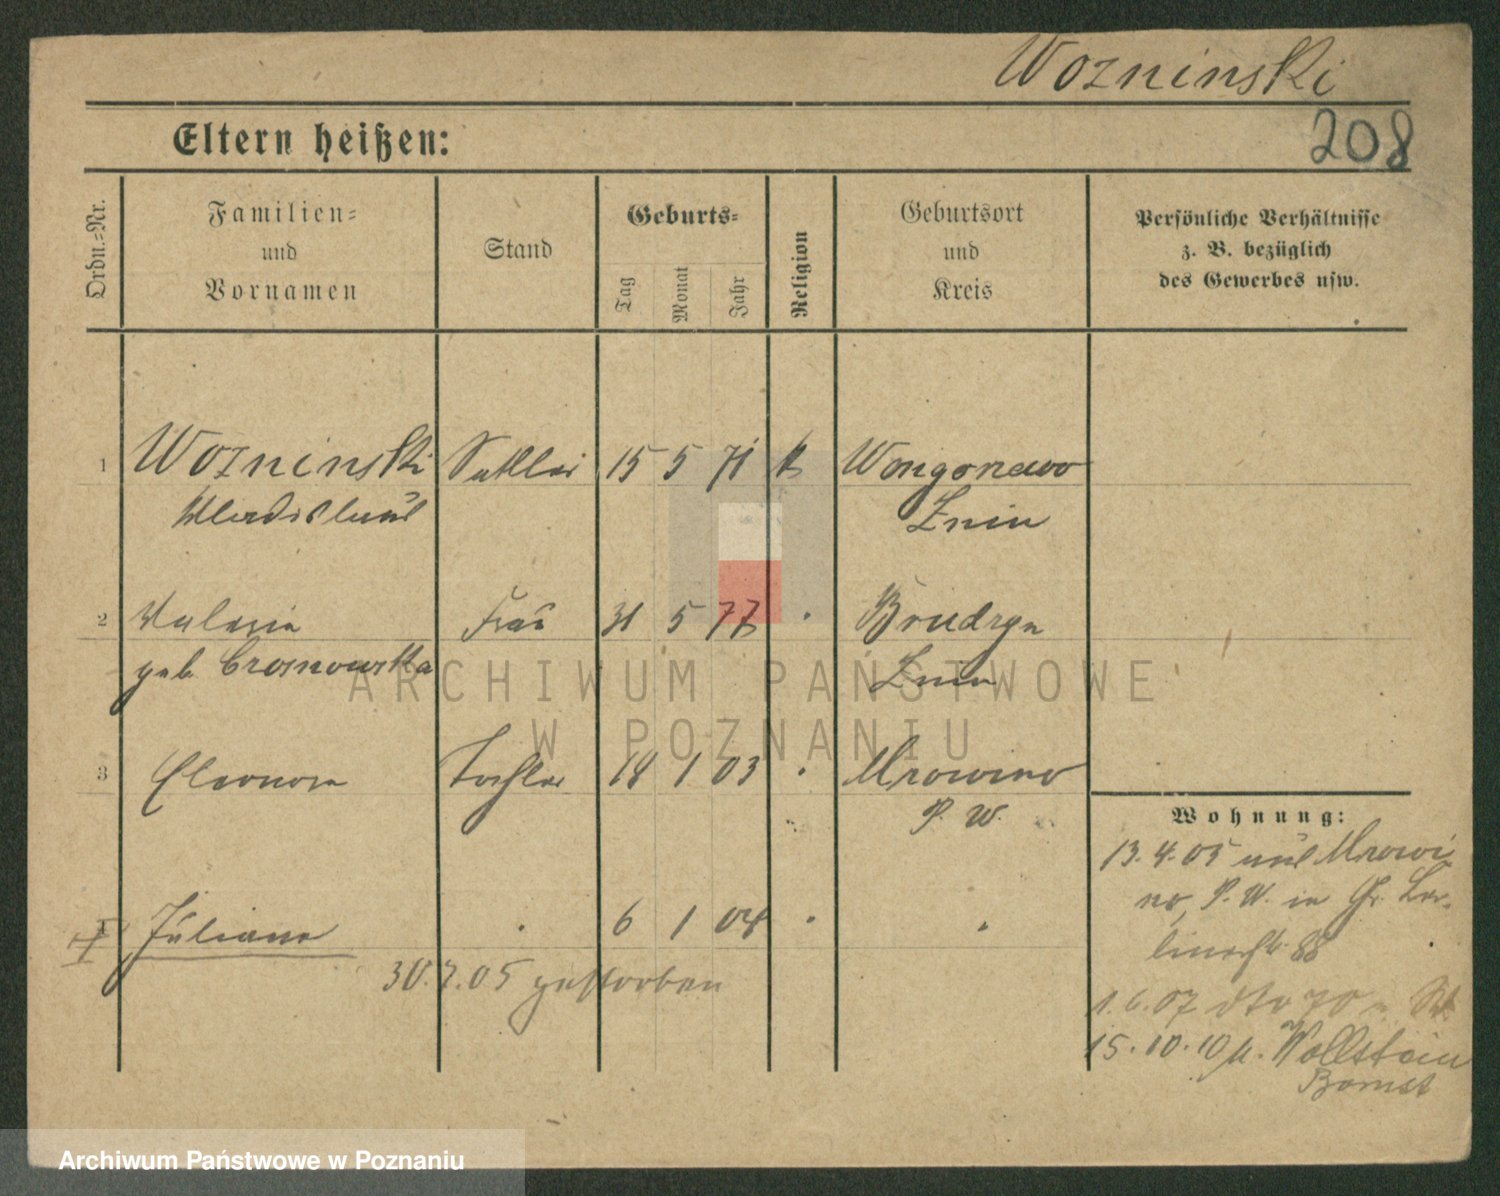 Wozninski
208
Eltern heißen:
Ordn.-Nr.
Familien-
und
Vornamen
Stand
Geburts-
Tag
Monat
Jahr
Religion
Geburtsort
und
Kreis
Persönliche Verhältnisse
z. B. bezüglich
des Gewerbes usw.
1 Wozninski Sattler 15 5 71 k Wongorzewo
Wladislaus Znin
2 Valerie Frau 31 5 77 " Brudzyn
geb. Znin
3 Eleonore Tochter 18 1 03 " Mrowino
P. W.
4 Juliane " 6 1 04 " "
30.7.05 gestorben
Wohnung:
13.4.05 aus Mrowi
no, P. W. in Gr. Ber-
linerstr. 88
1.6.07 dto 70
15.10.10 n. Wollstein
Bomst
ARCHIWUM PAŃSTWOWE
W POZNANIU
Archiwum Państwowe w Poznaniu